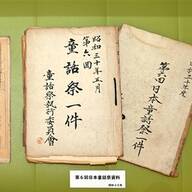 昭和三十年五月
第六回
童話祭一件
童話祭執行委員會
第六回日本童話祭一件
第6回日本童話祭資料